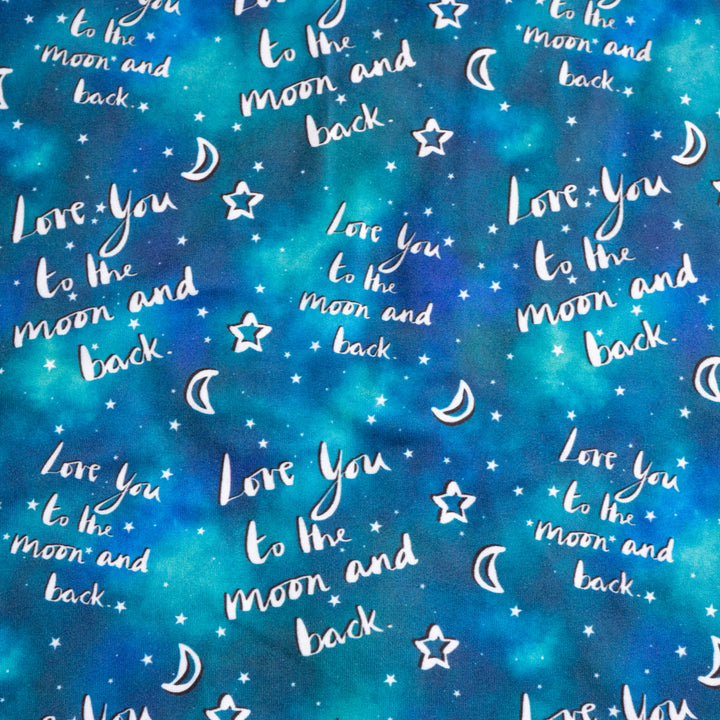 Love You
to the
moon and
back.
Love You
to the
moon and
back.
Love You
to the
moon and
back.
Love You
to the
moon and
back.
Love You
to the
moon and
back.
Love You
to the
moon and
back.
Love You
to the
moon and
back.
Love You
to the
moon and
back.
Love You
to the
moon and
back.
Love You
Love You